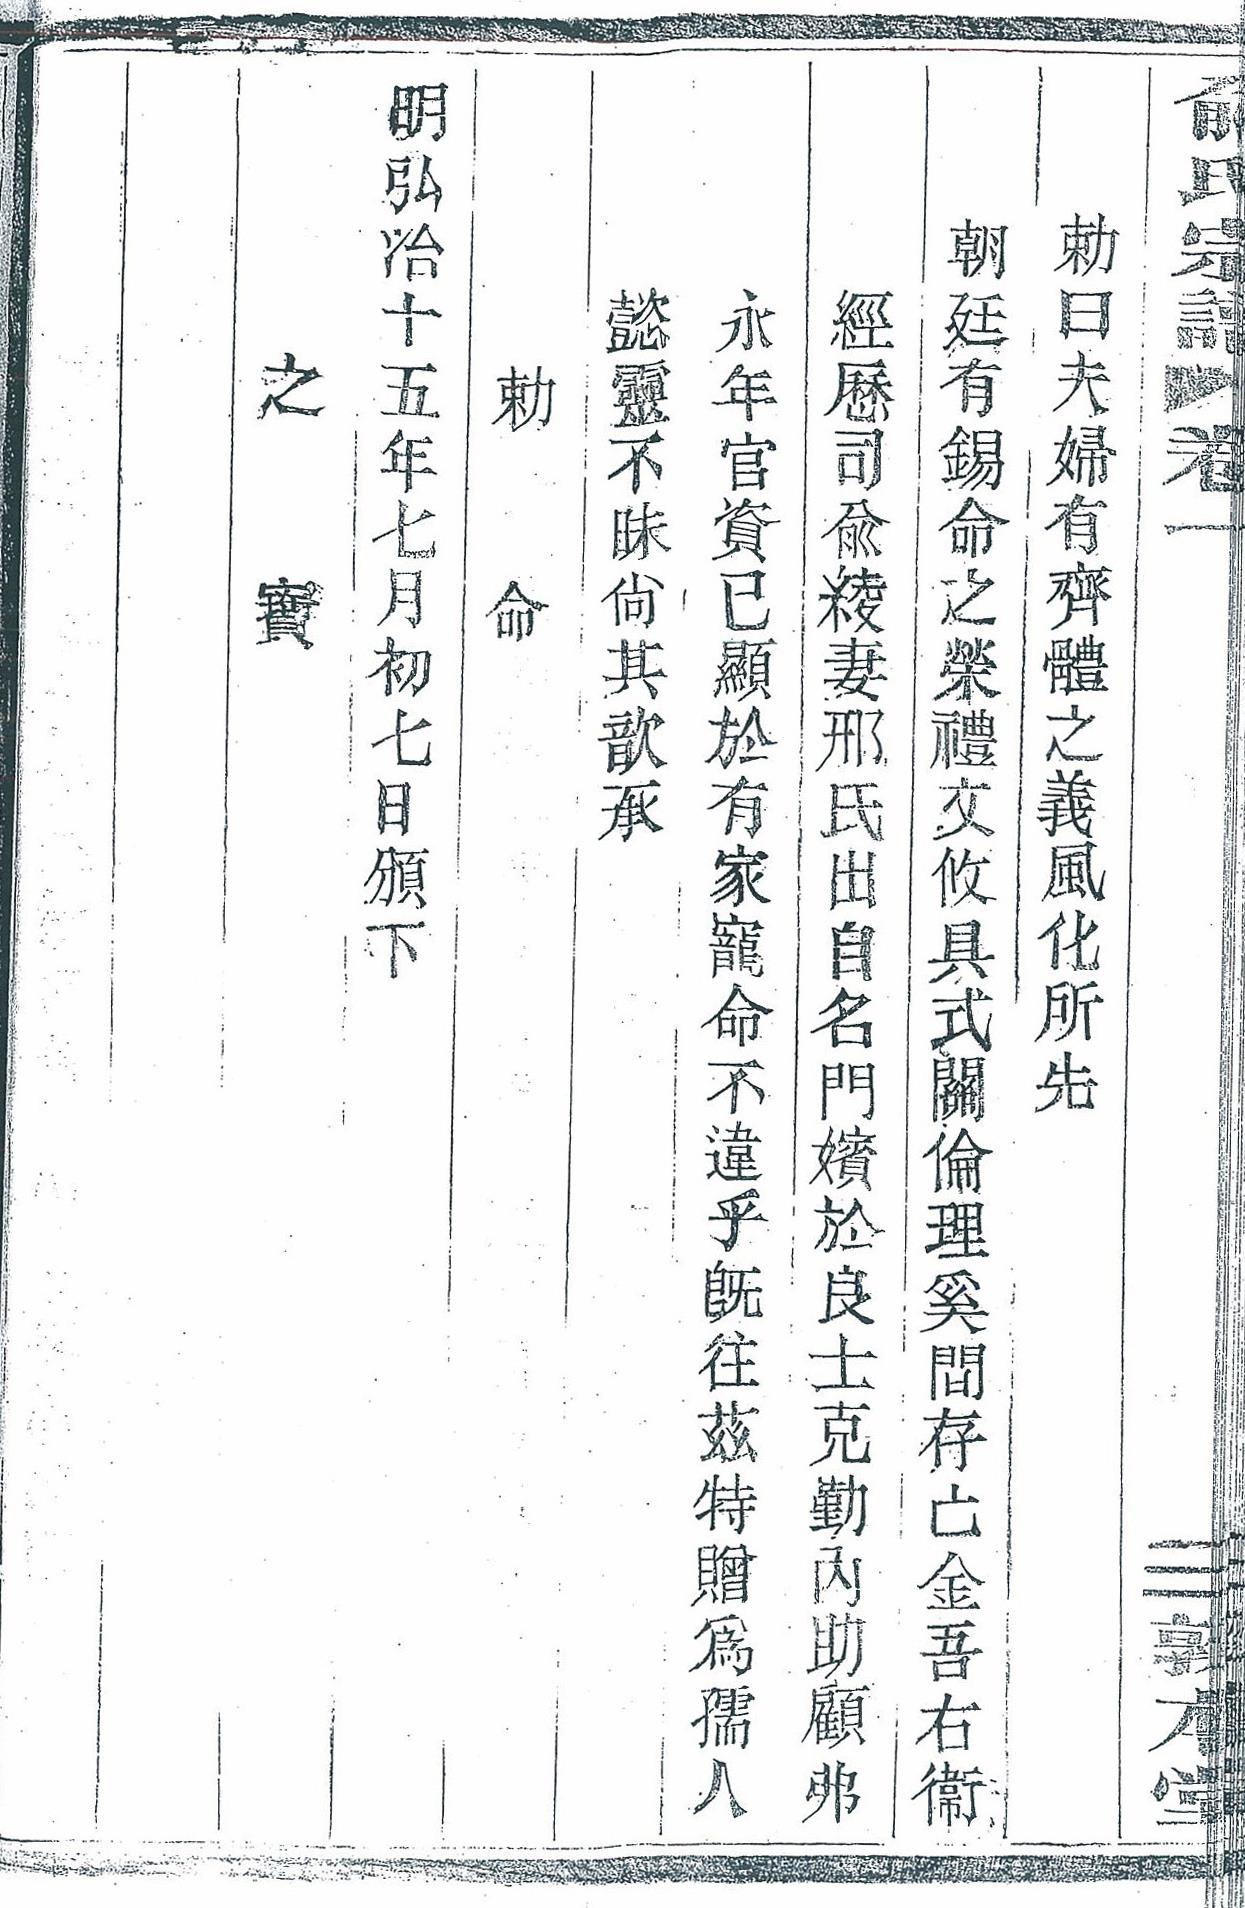 俞氏宗譜 卷一
三 敦本堂
勅曰夫婦有齊體之義風化所先
朝廷有錫命之榮禮文攸具式關倫理奚間存亡金吾右衞
經歷司俞綾妻邢氏出自名門嬪於良士克勤內助顧弗
永年官資已顯於有家寵命不違乎旣往茲特贈爲孺人
懿靈不昧尙其歆承
勅命
明弘治十五年七月初七日頒下
之寶